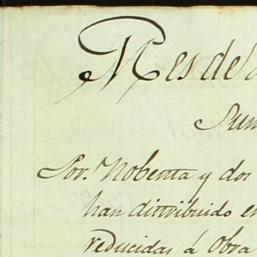 Mes de
Sum
Por. Nobenta y dos
han distribuido en
reducidas á Obra